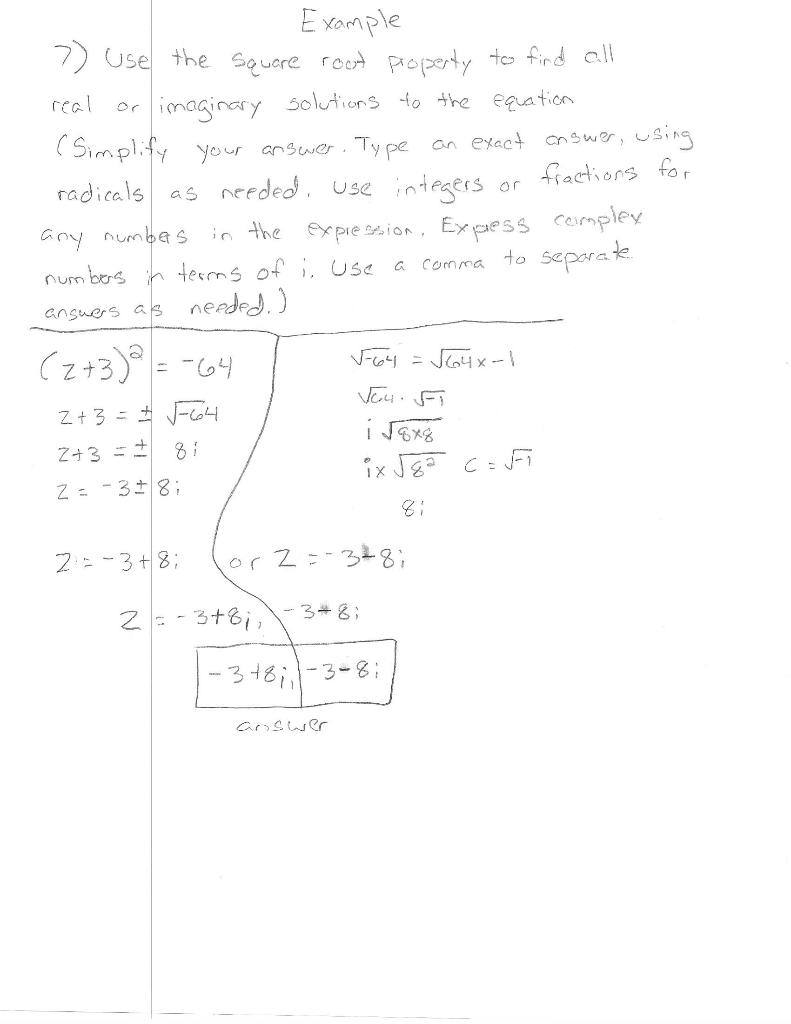 Example
7) Use the square root property to find all
real or imaginary solutions to the equation
(Simplify your answer. Type an exact answer, using
radicals as needed. Use integers or fractions for
any numbers in the expression. Express complex
numbers in terms of i. Use a comma to separate
answers as needed.)
(z+3)² = -64
z+3 = ± √-64
z+3 = ± 8i
z = -3 ± 8i
√-64 = √64x-1
√64 · √-1
i √8x8
ix √8² C = √-1
8i
z = -3+8i or z = -3-8i
z = -3+8i, -3-8i
-3+8i, -3-8i
answer